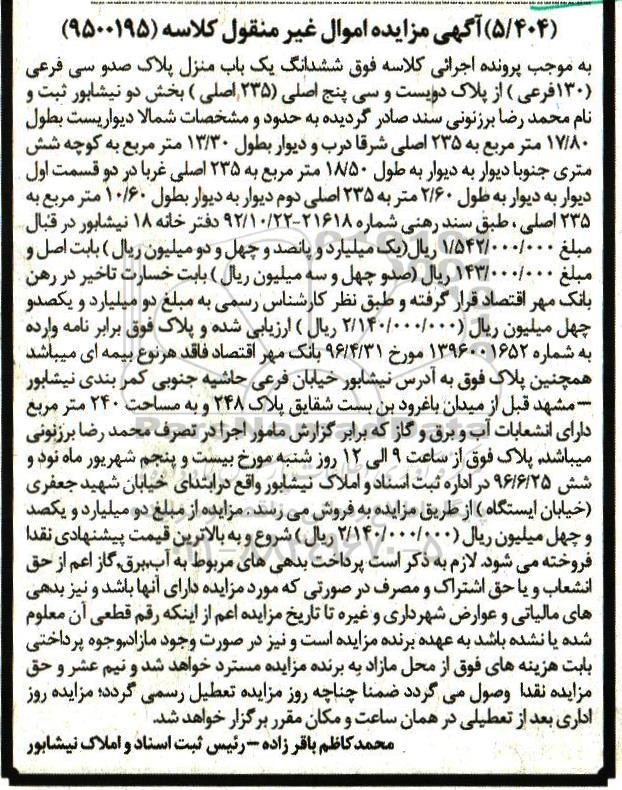 (۵/۴۰۴) آگهی مزایده اموال غیر منقول کلاسه (۹۵۰۰۱۹۵)
به موجب پرونده اجرائی کلاسه فوق ششدانگ یک باب منزل پلاک صدو سی فرعی
(۱۳۰فرعی ) از پلاک دویست و سی پنج اصلی (۲۳۵ اصلی ) بخش دو نیشابور ثبت و
نام محمد رضا برزنونی سند صادر گردیده به حدود و مشخصات شمالا دیواریست بطول
۱۷/۸۰ متر مربع به ۲۳۵ اصلی شرقا درب و دیوار بطول ۱۳/۳۰ متر مربع به کوچه شش
متری جنوبا دیوار به دیوار به طول ۱۸/۵۰ متر مربع به ۲۳۵ اصلی غربا در دو قسمت اول
دیوار به دیوار به طول ۲/۶۰ متر به ۲۳۵ اصلی دوم دیوار به دیوار بطول ۱۰/۶۰ متر مربع به
۲۳۵ اصلی ، طبق سند رهنی شماره ۲۱۶۱۸-۹۲/۱۰/۲۲ دفتر خانه ۱۸ نیشابور در قبال
مبلغ ۱/۵۴۲/۰۰۰/۰۰۰ ریال(یک میلیارد و پانصد و چهل و دو میلیون ریال ) بابت اصل و
مبلغ ۱۴۳/۰۰۰/۰۰۰ ریال (صدو چهل و سه میلیون ریال ) بابت خسارت تاخیر در رهن
بانک مهر اقتصاد قرار گرفته و طبق نظر کارشناس رسمی به مبلغ دو میلیارد و یکصدو
چهل میلیون ریال (۲/۱۴۰/۰۰۰/۰۰۰ ریال ) ارزیابی شده و پلاک فوق برابر نامه وارده
به شماره ۱۳۹۶۰۰۱۶۵۲ مورخ ۹۶/۴/۳۱ بانک مهر اقتصاد فاقد هرنوع بیمه ای میباشد
همچنین پلاک فوق به آدرس نیشابور خیابان فرعی حاشیه جنوبی کمر بندی نیشابور
–مشهد قبل از میدان باغرود بن بست شقایق پلاک ۲۴۸ و به مساحت ۲۴۰ متر مربع
دارای انشعابات آب و برق و گاز که برابر گزارش مامور اجرا در تصرف محمد رضا برزنونی
میباشد، پلاک فوق از ساعت ۹ الی ۱۲ روز شنبه مورخ بیست و پنجم شهریور ماه نود و
شش ۹۶/۶/۲۵ در اداره ثبت اسناد و املاک نیشابور واقع درابتدای خیابان شهید جعفری
(خیابان ایستگاه ) از طریق مزایده به فروش می رسد. مزایده از مبلغ دو میلیارد و یکصد
و چهل میلیون ریال (۲/۱۴۰/۰۰۰/۰۰۰ ریال ) شروع و به بالاترین قیمت پیشنهادی نقدا
فروخته می شود. لازم به ذکر است پرداخت بدهی های مربوط به آب،برق،گاز اعم از حق
انشعاب و یا حق اشتراک و مصرف در صورتی که مورد مزایده دارای آنها باشد و نیز بدهی
های مالیاتی و عوارض شهرداری و غیره تا تاریخ مزایده اعم از اینکه رقم قطعی آن معلوم
شده یا نشده باشد به عهده برنده مزایده است و نیز در صورت وجود مازاد،وجوه پرداختی
بابت هزینه های فوق از محل مازاد به برنده مزایده مسترد خواهد شد و نیم عشر و حق
مزایده نقدا وصول می گردد ضمنا چناچه روز مزایده تعطیل رسمی گردد؛ مزایده روز
اداری بعد از تعطیلی در همان ساعت و مکان مقرر برگزار خواهد شد.
محمدکاظم باقر زاده –رئیس ثبت اسناد و املاک نیشابور